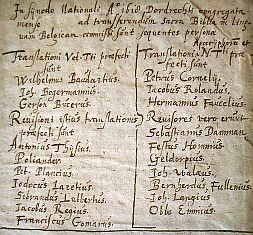 In Synodo Nationali A° ibid Dordrechti congregata
mense ad transferendum Sacra Biblia in linguam
vam Belgicam commissi sunt sequentes persona
Apocriphorū et
Translationi Vet. Tti præfecti
sunt
Wilhelmus Baudartius.
Joh. Bogermannus.
Gerson Bucerus.
Revisioni estius translationis
præfecti sunt
Antonius Thysius.
Poliander.
Pet. Plancius.
Jodocus Laretius
Sibrandus Lulbertus.
Jacobus Regius.
Franciscus Gomarus.
Translationi N. Tti præ
fecti sunt
Petrus Cornelij.
Jacobus Rolandus.
Hermannus Faucelius.
Revisores vero erunt
Sebastianus Damman.
Festus Hommius
Geldorpius.
Joh. Walæus.
Bernherdus Fullenius.
Joh. Langius
Obbo Emmius.